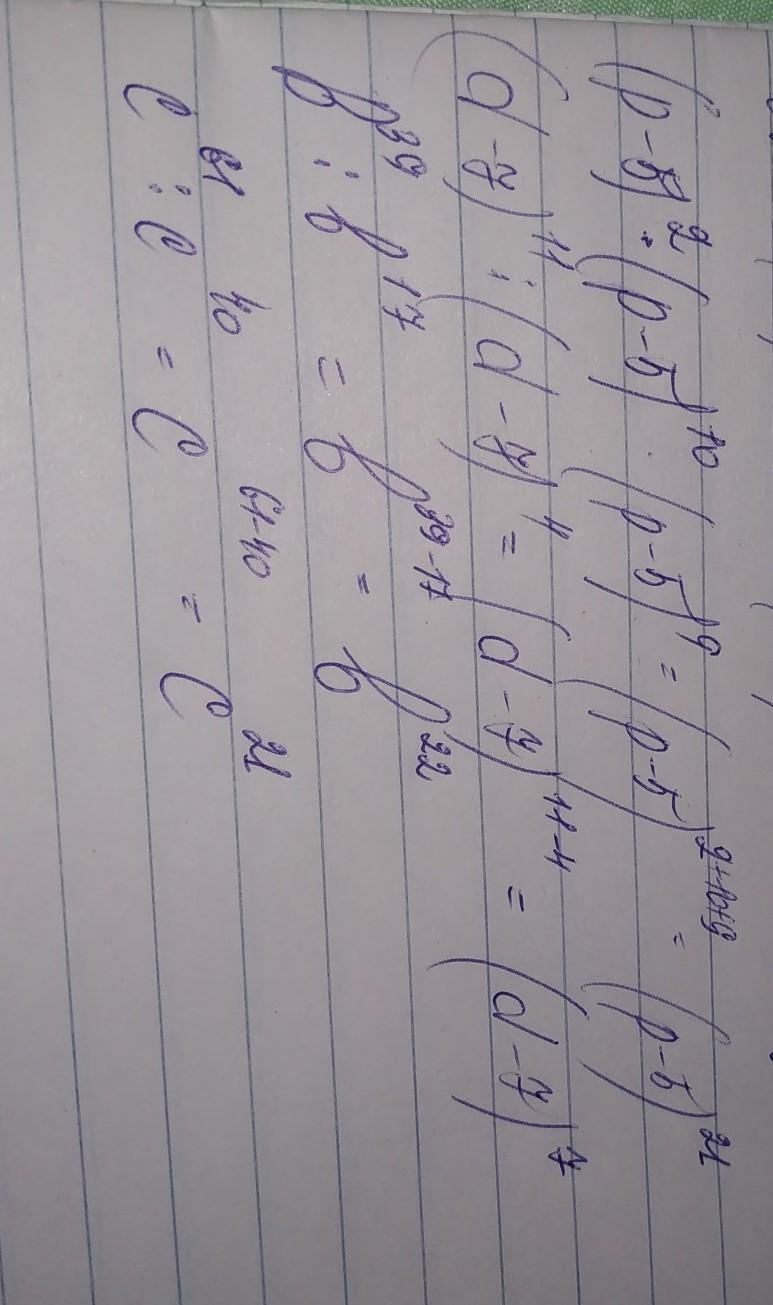 (p-5)² · (p-5)¹⁰ (p-5)⁹ = (p-5)²⁺¹⁰⁺⁹ = (p-5)²¹
(d-y)¹¹ : (d-y)⁴ = (d-y)¹¹⁻⁴ = (d-y)⁷
b³⁹ : b¹⁷ = b³⁹⁻¹⁷ = b²²
C⁶¹ : C⁴⁰ = C⁶¹⁻⁴⁰ = C²¹